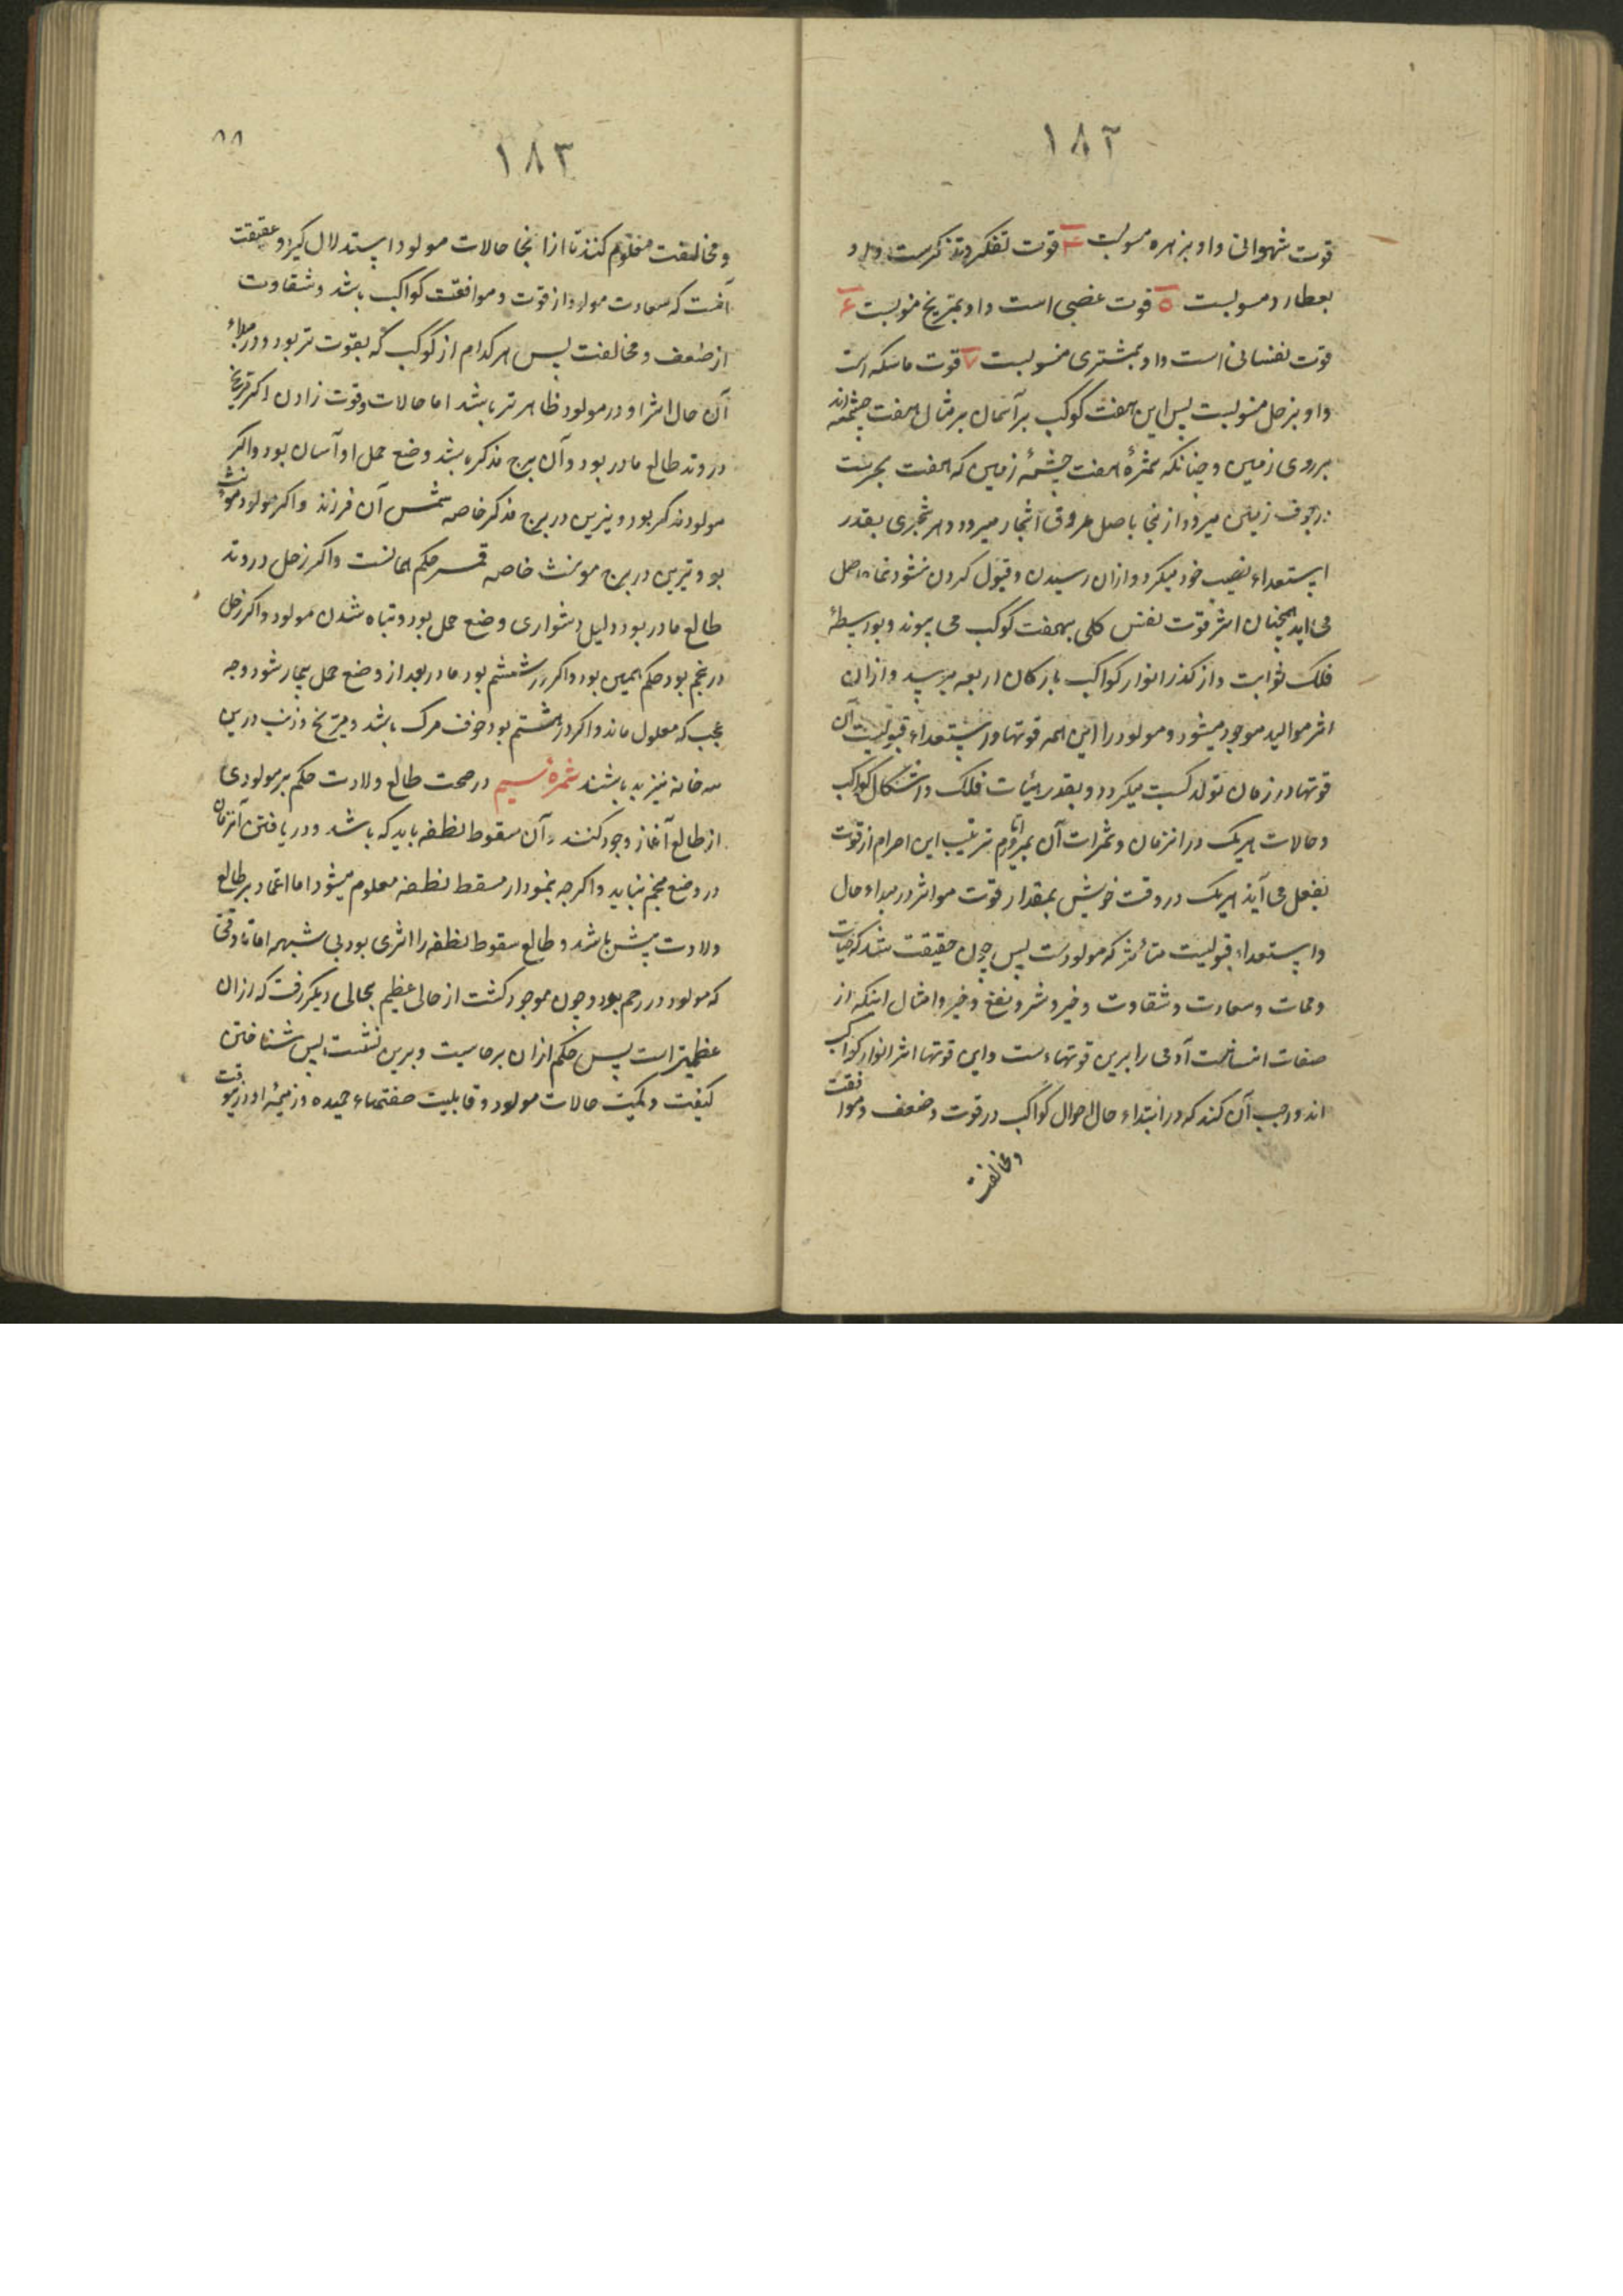 ۱۸۲
قوت شهوانی و او بزهره منسوبست ۴ قوت تفکر و تذکرست و او
بعطارد منسوبست ۵ قوت غضبی است و او بمریخ منسوبست ۶
قوت نفسانی است و او بمشتری منسوبست ۷ قوت ماسکه است
و او بزحل منسوبست پس این هفت کوکب بر آسمان بر مثال هفت چشمه اند
بر روی زمین و چنانکه ثمرهٔ هفت چشمهٔ زمین که هفت بحرست
در جوف زمین میرود از نجا باصل عروق اشجار میرود و هر شجری بقدر
استعداد نصیب خود میکرد و ازان رسیدن و قبول کردن نشو و نما حاصل
می آید همچنان اثر قوت نفس کلی بهفت کوکب می پیوندد و بوسیطهٔ
فلک ثوابت و از کذر انوار کواکب بارکان اربعه میرسید و ازان
اثر موالید موجود میشود و مولود را این همه قوتها و استعداد قبولیت آن
قوتها در زمان تولد کسب میکردد و بقدر هیئات فلک و اشکال کواکب
و حالات هریک در انزمان و ثمرات آن بمرور ایام ترتیب این اجرام از قوت
بفعل می آید هریک در وقت خویش بمقدار قوت موثر در مبداء حال
و استعداد قبولیت متاثر که مولودست پس چون حقیقت شد که حیات
و ممات و سعادت و شقاوت و خیر و شر و نفع و ضر و امثال اینکه از
صفات انسانست آدمی را برین قوتهاست و این قوتها اثر انوار کواکب
اند و واجب آن کند که در ابتداء حال احوال کواکب در قوت و ضعف و موافقت
و مخالفت
۱۸۳
۸۸
و مخالفت معلوم کنند تا از انجا حالات مولود استدلال کیرد و حقیقت
آنست که سعادت مولود از قوت و موافقت کواکب باشد و شقاوت
از ضعف و مخالفت پس هر کدام از کوکب که بقوت تر بود و در مبداء
آن حال اثر او در مولود ظاهر تر باشد اما حالات وقوت زادن اکر مریخ
در وتد طالع مادر بود و آن برج مذکر باشد وضع حمل او آسان بود و اکر
مولود مذکر بود و نیرین در برج مذکر خاصه شمس آن فرزند و اکر مولود مونث
بود و نیرین در برج مونث خاصه قمر حکم همانست و اکر زحل در وتد
طالع مادر بود دلیل دشواری وضع حمل بود و تباه شدن مولود و اکر زحل
در پنجم بود حکم همین بود و اکر در ششم بود مادر بعد از وضع حمل بیمار شود و چه
عجب که معلول ماند و اکر در هشتم بود خوف مرک باشد و مریخ و ذنب درین
سه خانه نیز بد باشند ثمره سیم در صحت طالع ولادت حکم بر مولودی
از طالع آغاز وجود کنند و آن سقوط نطفه باید که باشد و دریافتن آنزمان
در وضع منجم نیاید و اکرچه بنمودار مسقط نطفه معلوم میشود اما اعتماد بر طالع
ولادت بیش باشد و طالع سقوط نطفه را اثری بود بی شبهه اما تا وقتی
که مولود در رحم بود و چون موجود کشت از حالی عظیم بحالی دیکر رفت که ازان
عظیمتر است پس حکم ازان برخاست و برین نشست پس شناختن
کیفیت و کمیت حالات مولود و قابلیت صفتهاء حمیده و ذمیمهٔ او در وقت